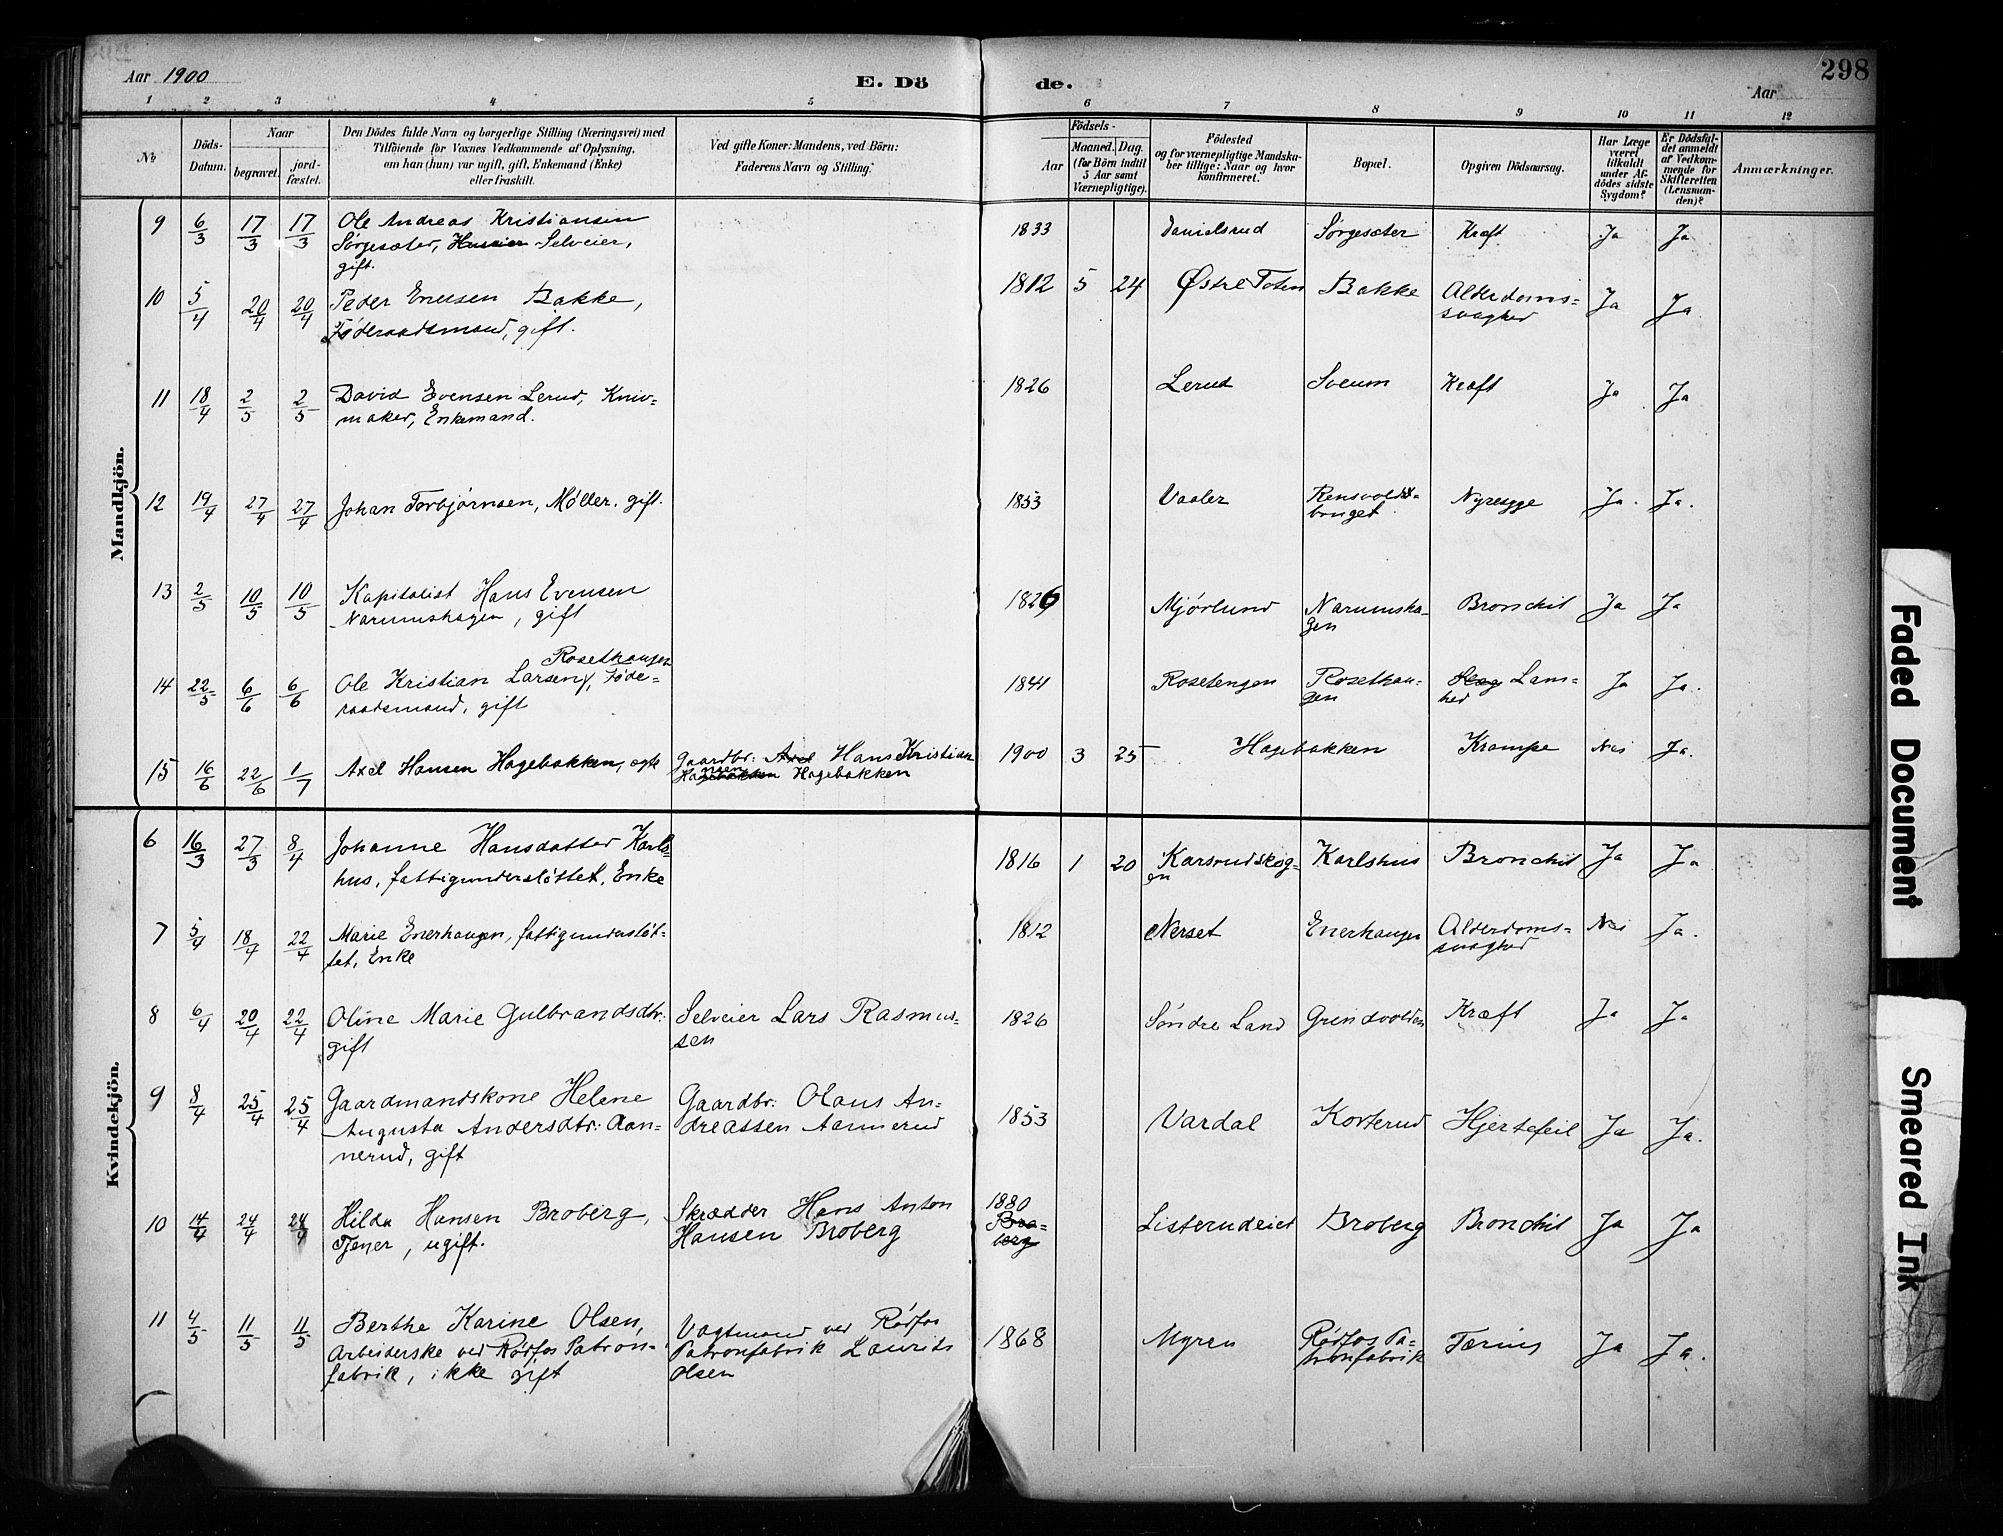 Aar 1900
E. Dö
de.
Aar
298
1 2 3 4 5 6 7 8 9 10 11 12
No
Döds-
Datum.
Naar
begravet.
jord-
fæstet.
Den Dödes fulde Navn og borgerlige Stilling (Næringsvei) med
Tilföiende for Voxnes Vedkommende af Oplysning,
om han (hun) var ugift, gift, Enkemand (Enke)
eller fraskilt.
Ved gifte Koner: Mandens, ved Börn:
Faderens Navn og Stilling.
Födsels-
Aar
Maaned. Dag.
(for Börn indtil
5 Aar samt
Værnepligtige).
Födested
og for værnepligtige Mandska-
ber tillige: Naar og hvor
konfirmeret.
Bopæl.
Opgiven Dödsaarsag.
Har Læge
været
tilkaldt
under Af-
dödes sidste
Sygdom?
Er Dödsfal-
det anmeldt
af Vedkom-
mende for
Skifteretten
(Lensman-
den)?
Anmærkninger.
Mandkjön.
9 6/3 17/3 17/3 Ole Andreas Kristiansen
Sørgesæter, Huseier Selveier,
gift.
1833 Danielsrud Sørgesæter Kræft Ja Ja
10 5/4 20/4 20/4 Peder Enersen Bakke,
Føderaadsmand, gift.
1812 5 24 Østre Toten Bakke Alderdoms=
svaghed Ja Ja.
11 18/4 2/5 2/5 David Evensen Lerud, Kniv=
maker, Enkemand.
1826 Lerud Sveum Kræft Ja Ja
12 19/4 27/4 27/4 Johan Torbjørnsen, Møller. gift.
1853 Vaaler Rensvolds=
bruget Nyresyge Ja. Ja.
13 2/5 10/5 10/5 Kapitalist Hans Evensen
Narumshagen, gift
1826 Mjørlund Narumsha-
gen Bronchit Ja Ja
14 22/5 6/6 6/6 Ole Kristian Larsen, Føde=
Rosethaugen
raadsmand, gift
1841 Rosetengen Rosethau-
gen Lam-
hed Ja Ja.
15 16/6 22/6 1/7 Axel Hansen Hagebakken, ægte
Gaardbr: Axel Hans Kristian
Hagebakken Hagebakken
1900 3 25 Hagebakken Krampe Nei Ja.
Kvindekjön.
6 16/3 27/3 8/4 Johanne Hansdatter Karls-
hus, fattigunderstøttet, Enke
1816 1 20 Karsrudskog-
en Karlshus Bronchit Ja Ja
7 5/4 18/4 22/4 Marie Enerhaugen, fattigunderstøt-
tet, Enke
1812 Nerset Enerhaugen Alderdoms=
svaghed Nei Ja.
8 6/4 20/4 22/4 Oline Marie Gulbrandsdtr:
gift
Selveier Lars Rasmus-
sen
1826 Søndre Land Grindvolden Kræft Ja Ja
9 8/4 25/4 25/4 Gaardmandskone Helene
Augusta Andersdtr: Aan-
nerud, gift
Gaardbr: Olaus An-
dreassen Aannerud
1853 Vardal Korterud Hjertefeil Ja Ja.
10 14/4 24/4 24/4 Hilda Hansen Broberg,
Tjener, ugift.
Skrædder Hans Anton
Hansen Broberg
1880
Bro-
berg
Listerudeiet Broberg Bronchit Ja Ja
11 4/5 11/5 11/5 Berthe Karine Olsen,
Arbeiderske ved Rødfos Patron-
fabrik, ikke gift
Vagtmand ved Rødfos
Patronfabrik Laurits
Olsen
1868 Myren Rødfos Pa-
tronfabrik Tæring Ja Ja.
Faded Document
Smeared Ink